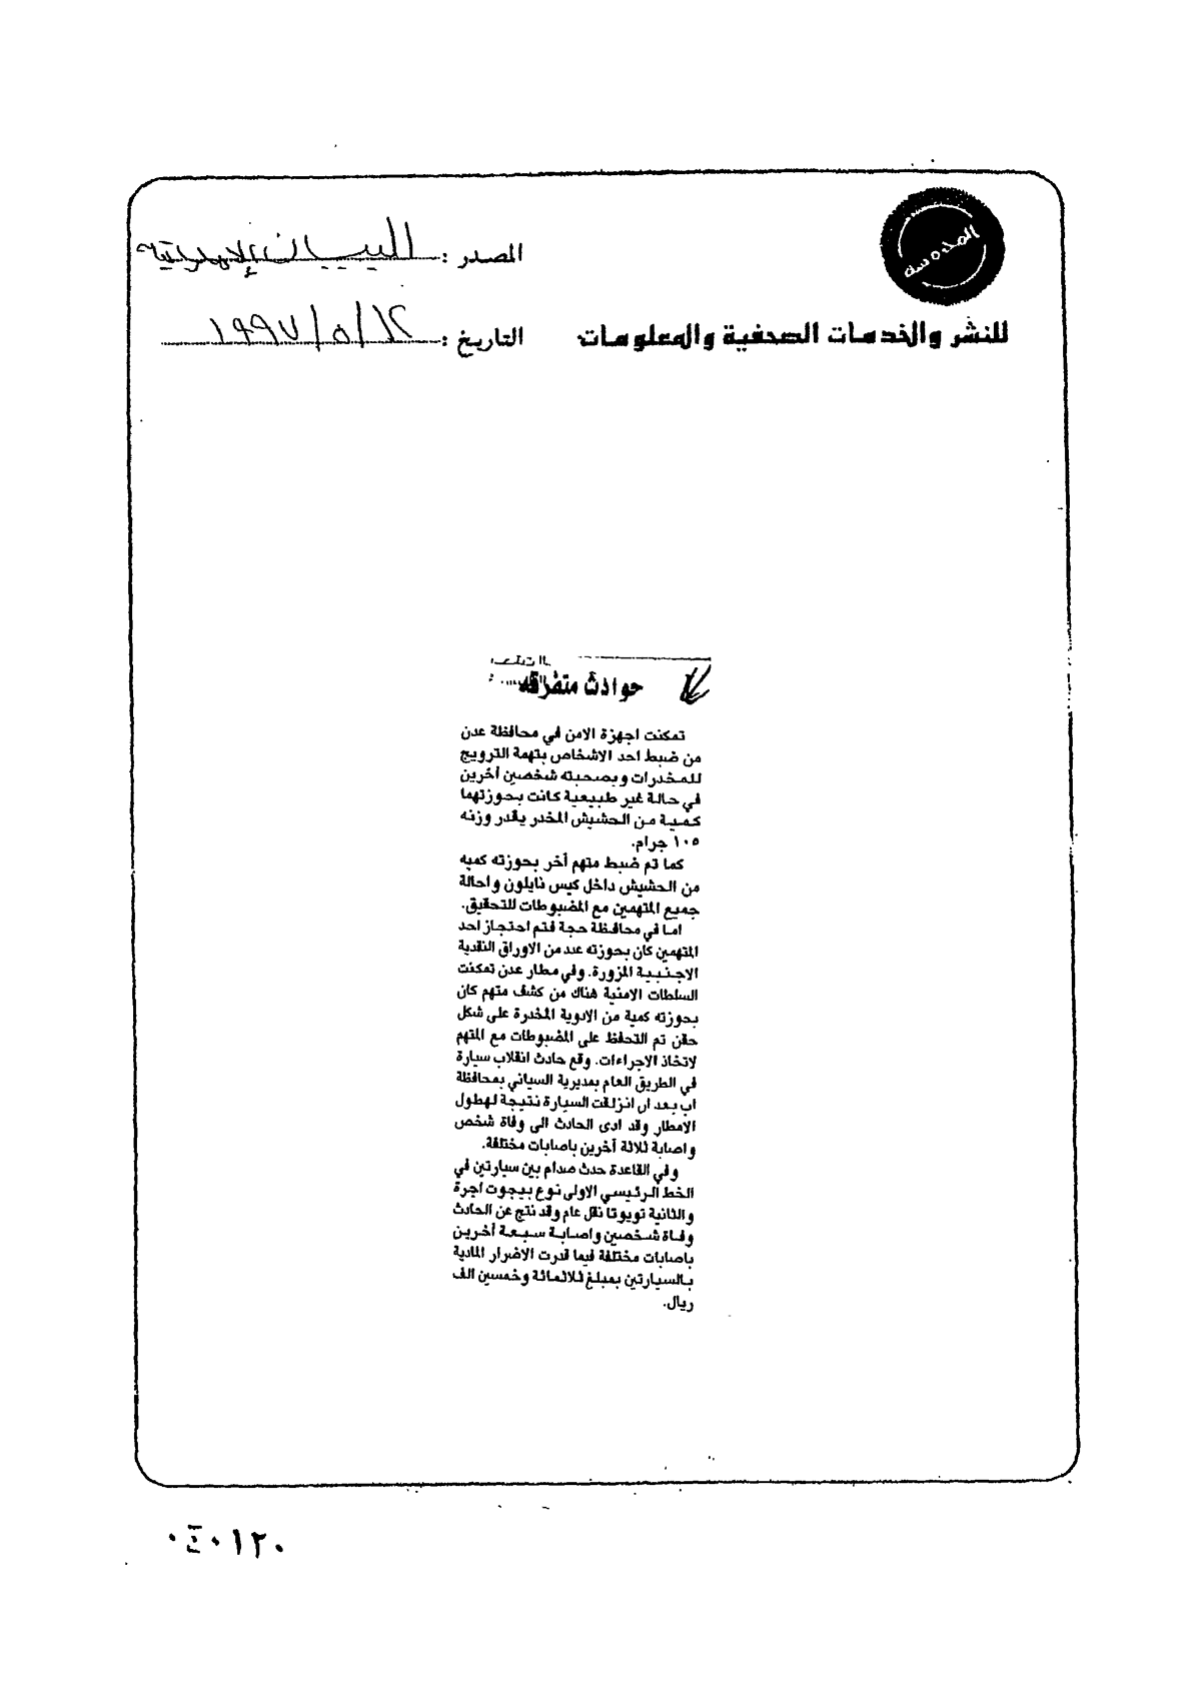 المحروسة
المصدر : البيان الإماراتية
للنشر والخدمات الصحفية والمعلومات
التاريخ : ١٢/٥/١٩٩٧
حوادث متفرقه
تمكنت اجهزة الامن في محافظة عدن
من ضبط احد الاشخاص بتهمة الترويج
للمخدرات وبصحبته شخصين أخرين
في حالة غير طبيعية كانت بحوزتهما
كمية من الحشيش المخدر يقدر وزنه
١٠٥ جرام.
كما تم ضبط متهم أخر بحوزته كميه
من الحشيش داخل كيس نايلون واحالة
جميع المتهمين مع المضبوطات للتحقيق.
اما في محافظة حجة فتم احتجاز احد
المتهمين كان بحوزته عدد من الاوراق النقدية
الاجنبية المزورة. وفي مطار عدن تمكنت
السلطات الامنية هناك من كشف متهم كان
بحوزته كمية من الادوية المخدرة على شكل
حقن تم التحفظ على المضبوطات مع المتهم
لاتخاذ الاجراءات. وقع حادث انقلاب سيارة
في الطريق العام بمديرية السياني بمحافظة
اب بعد ان انزلقت السيارة نتيجة لهطول
الامطار وقد ادى الحادث الى وفاة شخص
واصابة ثلاثة أخرين باصابات مختلفة.
وفي القاعدة حدث صدام بين سيارتين في
الخط الرئيسي الاولى نوع بيجوت اجرة
والثانية تويوتا نقل عام وقد نتج عن الحادث
وفاة شخصين واصابة سبعة أخرين
باصابات مختلفة فيما قدرت الاضرار المادية
بالسيارتين بمبلغ ثلاثمائة وخمسين الف
ريال.